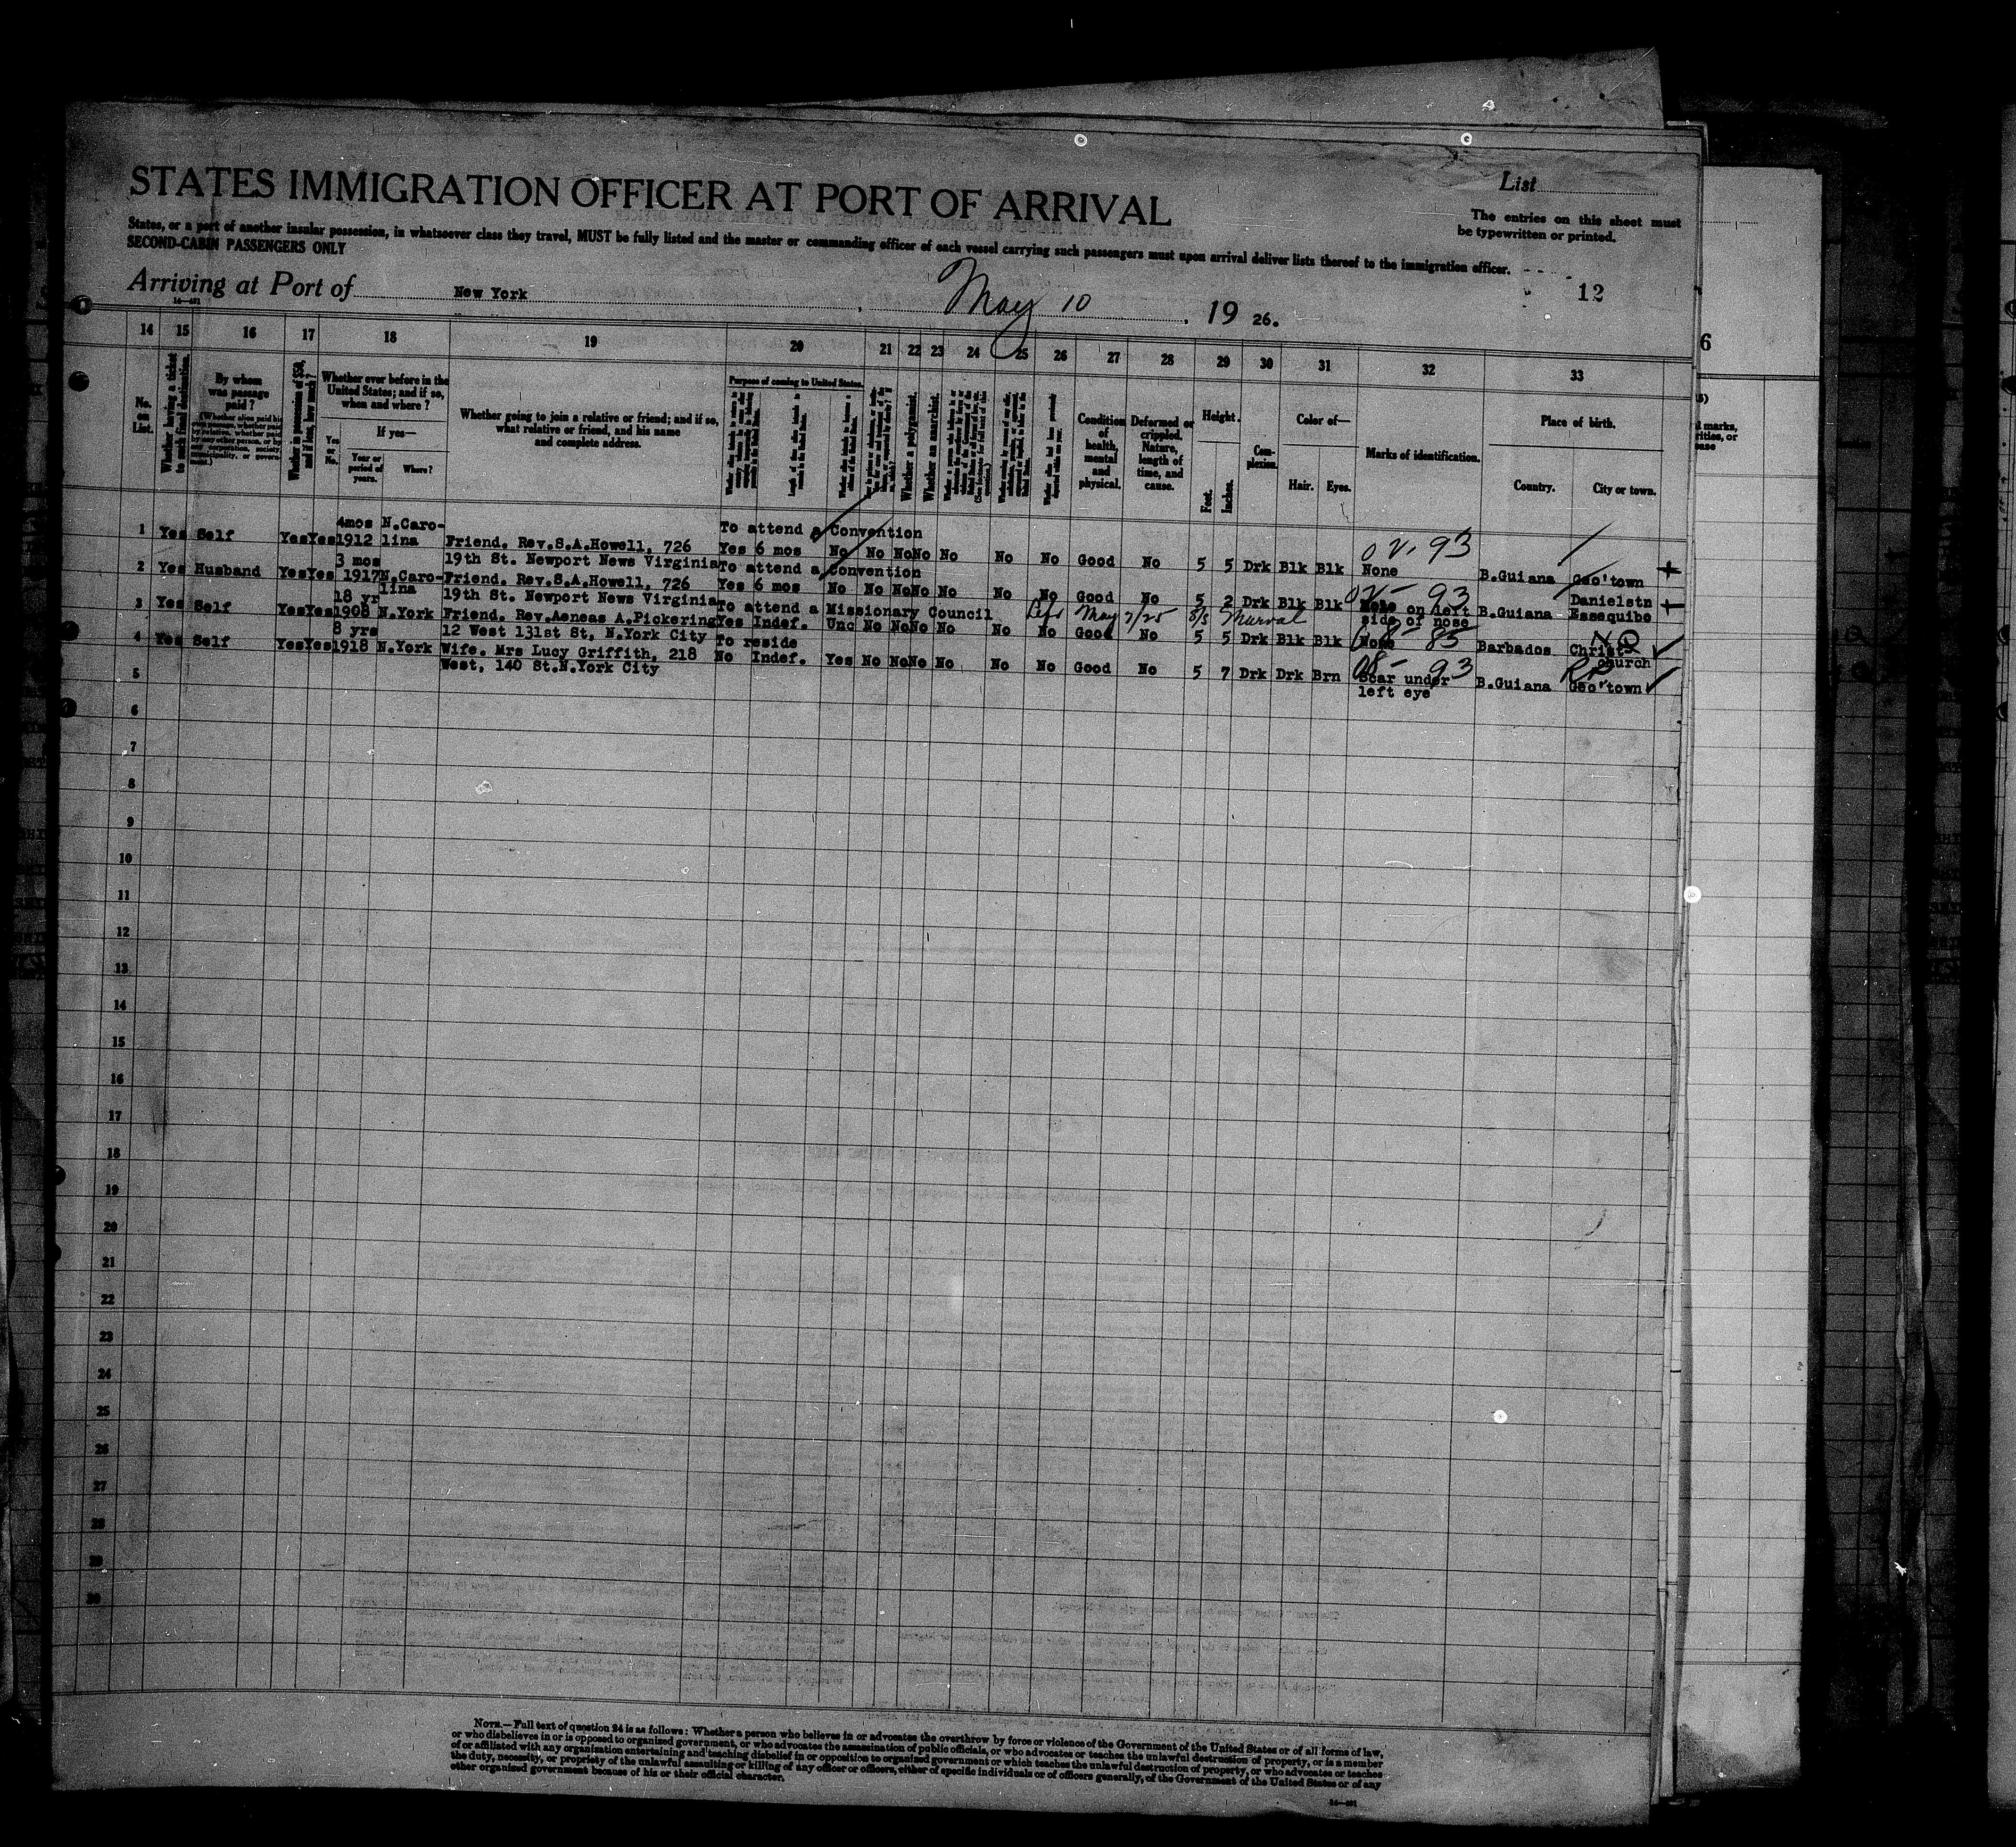 STATES IMMIGRATION OFFICER AT PORT OF ARRIVAL
List
The entries on this sheet must
be typewritten or printed.
States, or a port of another insular possession, in whatsoever class they travel, MUST be fully listed and the master or commanding officer of each vessel carrying such passengers must upon arrival deliver lists thereof to the immigration officer.
SECOND-CABIN PASSENGERS ONLY
Arriving at Port of New York, May 10, 19 26.
12
14 15 16 17 18 19 20 21 22 23 24 25 26 27 28 29 30 31 32 33
No. on List.
Whether having a ticket to such final destination.
By whom was passage paid?
Whether in possession of $50, and if less, how much?
Whether ever before in the United States; and if so, when and where?
Yes or No.
If yes—
Year or period of years.
Where?
Whether going to join a relative or friend; and if so, what relative or friend, and his name and complete address.
Purpose of coming to United States.
Whether a polygamist.
Whether an anarchist.
Condition of health, mental and physical.
Deformed or crippled. Nature, length of time, and cause.
Height.
Feet.
Inches.
Complexion.
Color of—
Hair.
Eyes.
Marks of identification.
Place of birth.
Country.
City or town.
1 Yes Self Yes Yes 4mos 1912 N.Caro-lina Friend. Rev.S.A.Howell, 726 19th St. Newport News Virginia To attend a Convention Yes 6 mos No No No No No No No Good No 5 5 Drk Blk Blk None B.Guiana Geo'town
2 Yes Husband Yes Yes 3 mos 1917 N.Caro-lina Friend. Rev.S.A.Howell, 726 19th St. Newport News Virginia To attend a Convention Yes 6 mos No No No No No No No Good No 5 2 Drk Blk Blk on left side of nose B.Guiana Danielstn Essequibo
3 Yes Self Yes Yes 18 yr 1908 N.York Friend. Rev.Aeneas A.Pickering 12 West 131st St, N.York City To attend a Missionary Council Yes Indef. Unc No No No No No No Good No 5 5 Drk Blk Blk None Barbados Christ church
May 7/25
4 Yes Self Yes Yes 8 yrs 1918 N.York Wife. Mrs Lucy Griffith, 218 West, 140 St.N.York City To reside No Indef. Yes No No No No No No Good No 5 7 Drk Drk Brn Scar under left eye B.Guiana Geo'town
5
6
7
8
9
10
11
12
13
14
15
16
17
18
19
20
21
22
23
24
25
26
27
28
29
30
NOTE.—Full text of question 24 is as follows: Whether a person who believes in or advocates the overthrow by force or violence of the Government of the United States or of all forms of law,
or who disbelieves in or is opposed to organized government, or who advocates the assassination of public officials, or who advocates or teaches the unlawful destruction of property, or is a member
of or affiliated with any organization entertaining and teaching disbelief in or opposition to organized government or which teaches the unlawful destruction of property, or who advocates or teaches
the duty, necessity, or propriety of the unlawful assaulting or killing of any officer or officers, either of specific individuals or of officers generally, of the Government of the United States or of any
other organized government because of his or their official character.